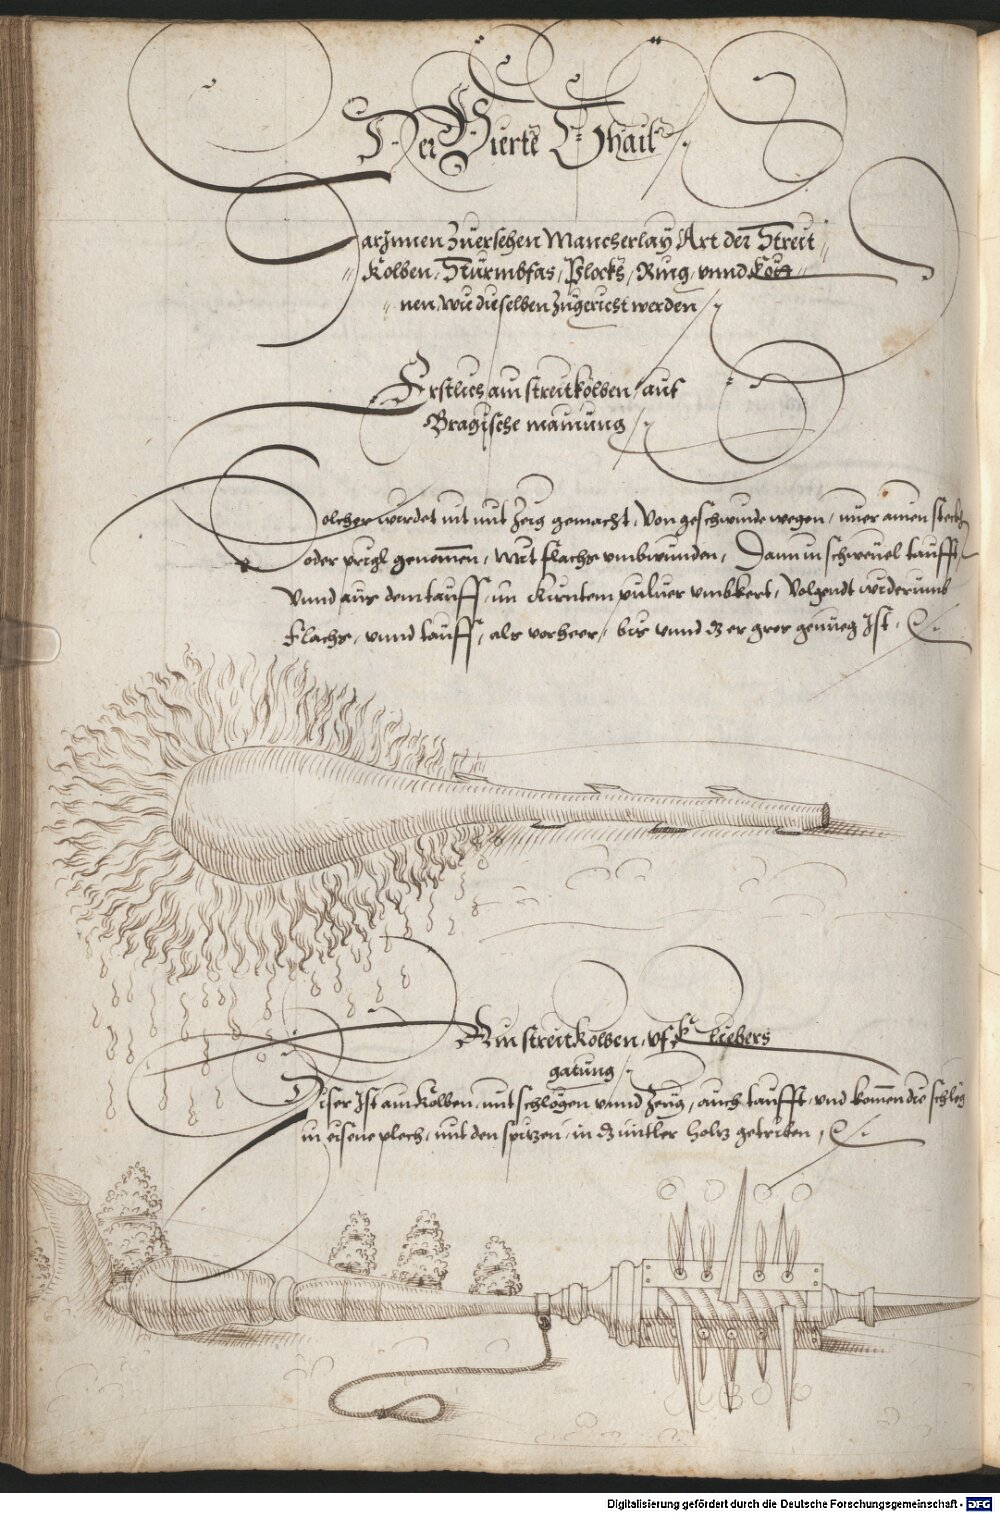 Der Vierte Thail /.
Darinnen zuersehen Mancherlay Art der Streit
Kolben, Sturmbfas, Plockh, Ring, vnnd Kött„
„nen, wie dieselben zugericht werden /.
Erstlich ain streitkolben, auf
Bragische mainung /.
Solcher wirdet nit mit Zeig gemacht, Von geschwinde wegen, nuer ainen steckh
oder prigl genomen, Mit flachs vmbwunden, Dann in schweuel taufft,
Vnnd aus dem tauff, in kirntem puluer vmbkert, Volgendt widerumb
flachs, vnnd tauff, als vorheer, bis vnnd dz er gros genueg Ist, &/.
Ain streitkolben, vf Liebers
gatung /.
Diser Ist ain Kolben, mit schlögen vnnd Zeug, auch taufft, vnd komen die schlög
in eisene plech, mit den spizen, in dz mitler holz getriben, &/.
Digitalisierung gefördert durch die Deutsche Forschungsgemeinschaft - DFG